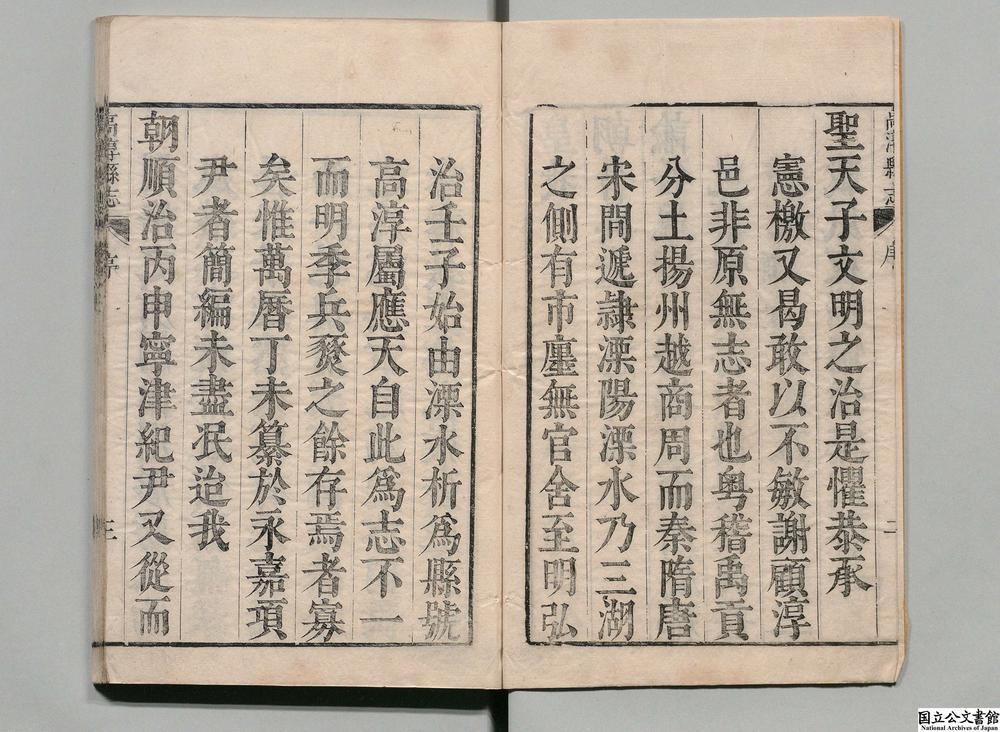 聖天子文明之治是懼恭承
憲檄又曷敢以不敏謝顧淳
邑非原無志者也粤稽禹貢
分土揚州越商周而秦隋唐
宋問遞隷溧陽溧水乃三湖
之側有市廛無官舍至明弘
治壬子始由溧水析爲縣號
高淳屬應天自此爲志不一
而明季兵燹之餘存焉者寡
矣惟萬曆丁未纂於永嘉項
尹者簡編未盡泯迨我
朝順治丙申寧津紀尹又從而
高淳縣志
序
二
高淳縣志
序
三
国立公文書館
National Archives of Japan